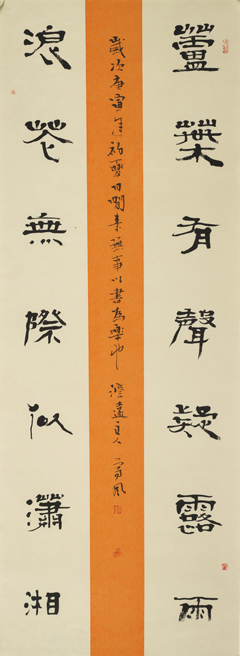 蘆葉有聲疑露雨
歲次庚寅年初夏日閒來無事以書為樂也 澄遠主人
浪花無際似瀟湘